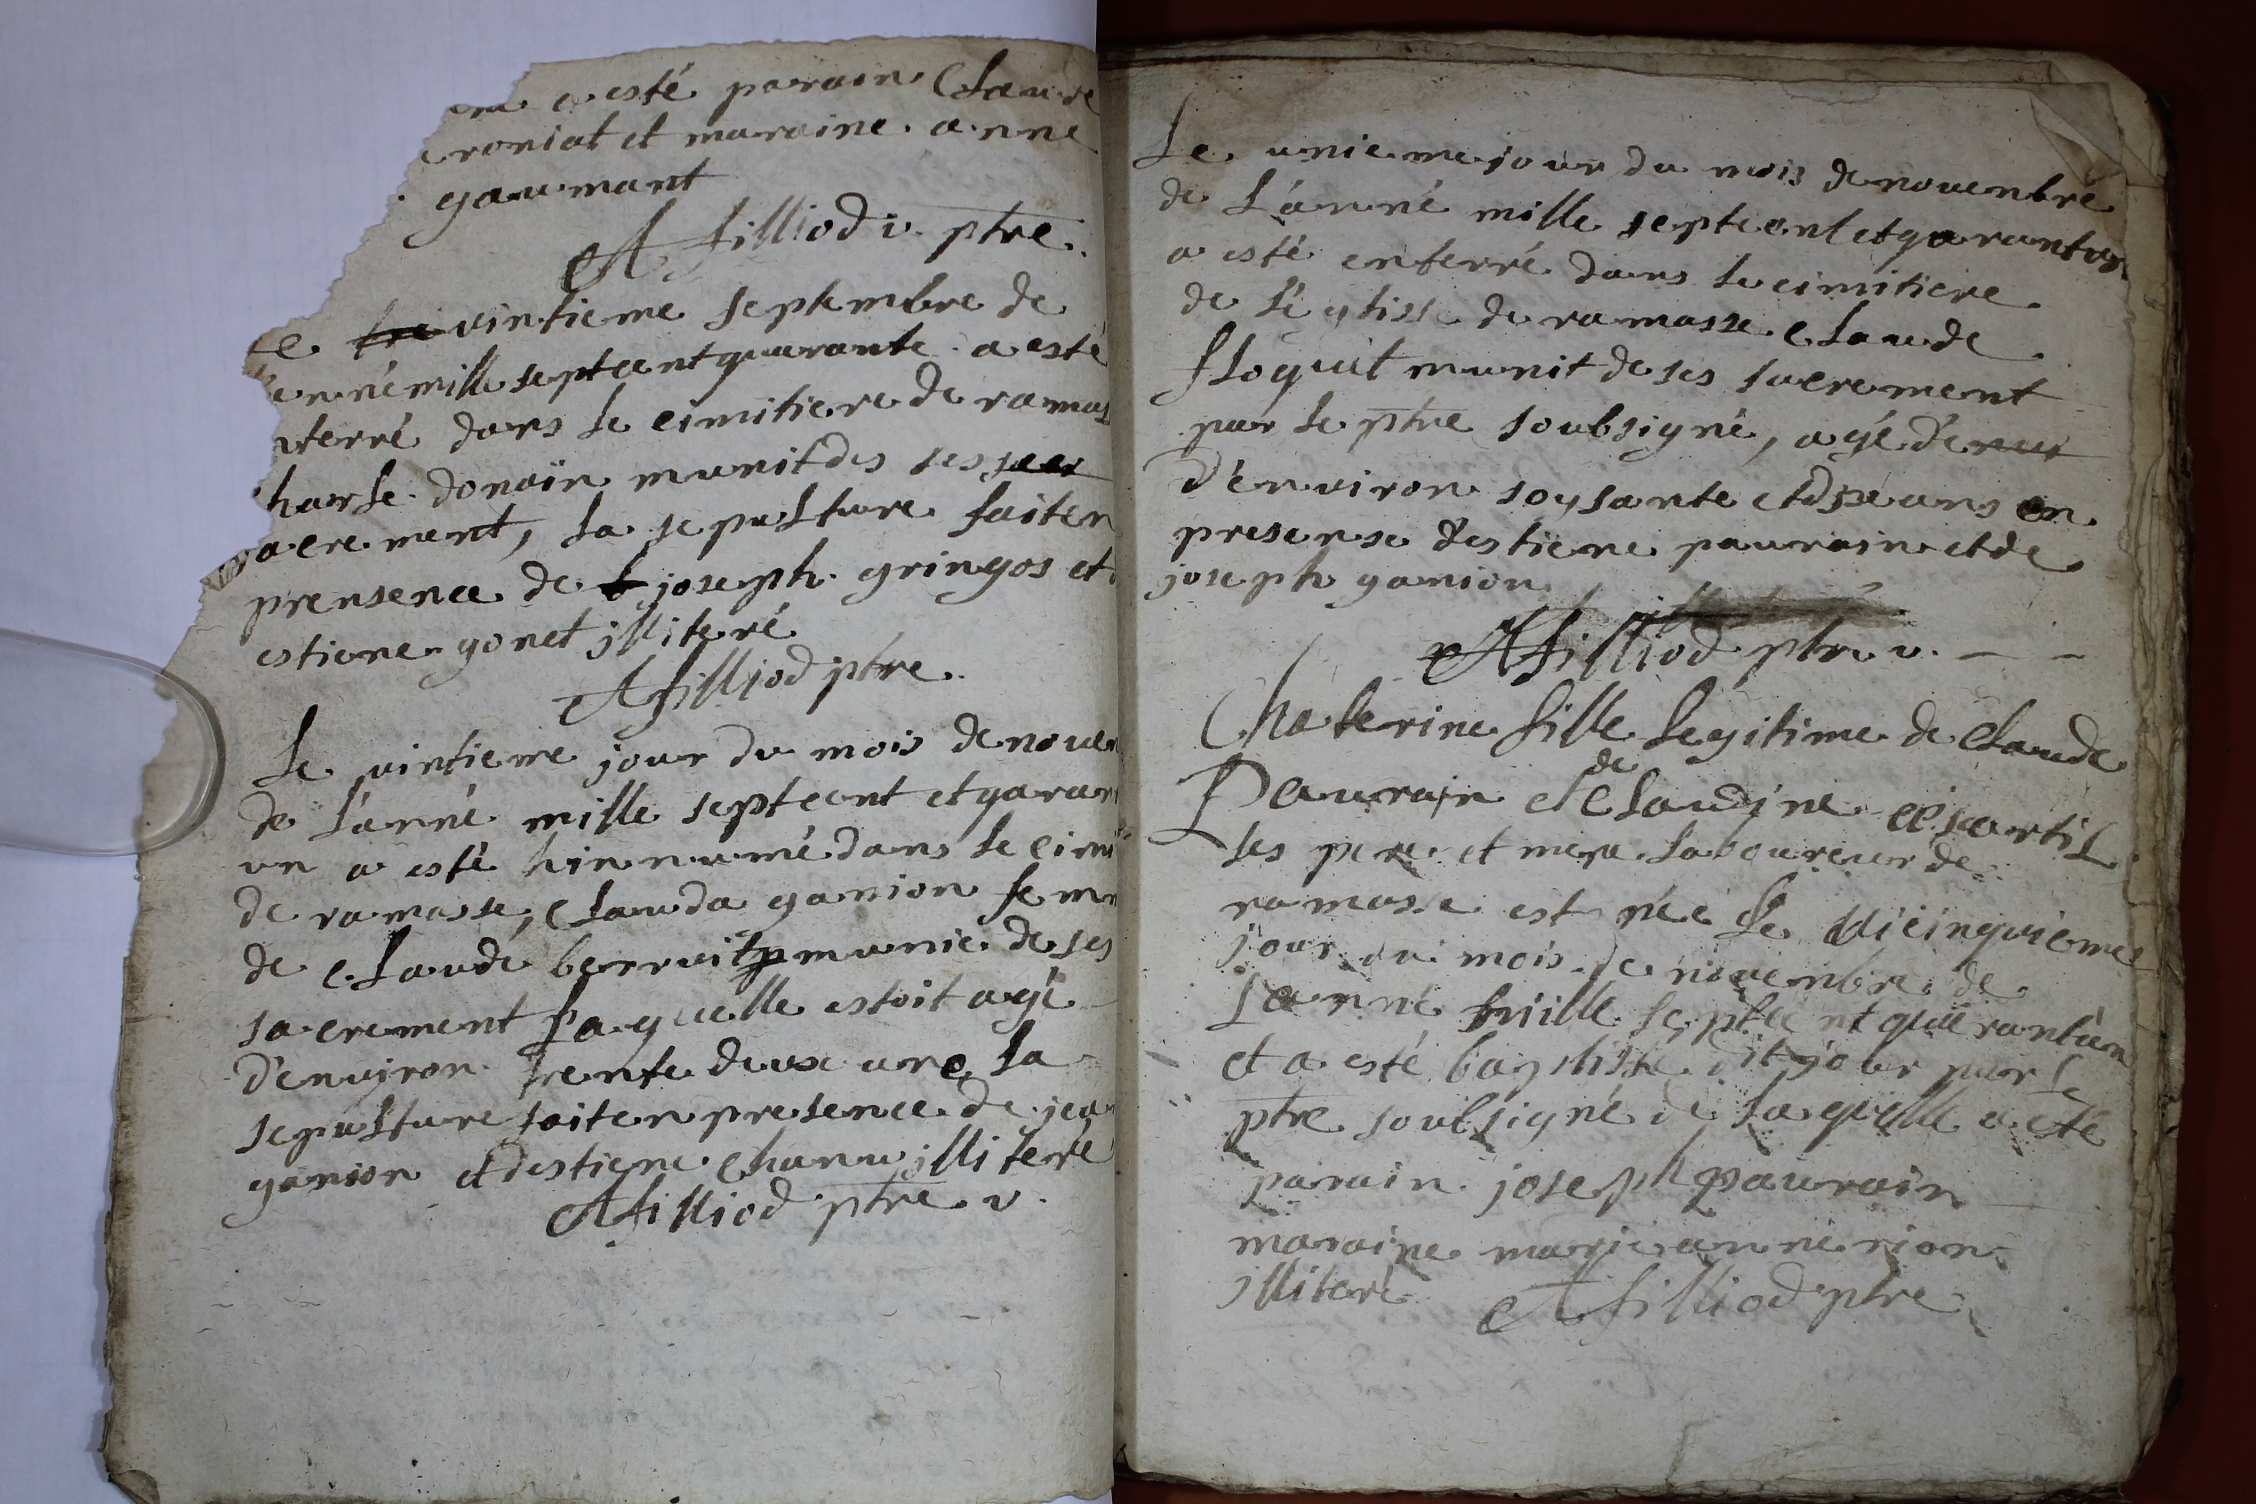 a esté parain Claude
roniat et maraine anne
gaumant
A filliod v. ptre.
le vintieme septembre de
l'enné mille septcent quarante a esté
nterré dans le cimitiere de ramas
harle donain munit des ses
sacrement, la sepulture faiten
prensence de joseph gringos et
estiene gonet jlliteré
A filliod ptre
Le vintieme jour du mois de nouem
de l'anné mille septcent et garan
un a esté hinnumé dans le cimi
de ramasse, Clauda ganion fem
de Claude berruit munié de ses
sacrement laquelle estoit agé
d'environ trente deux ans la
sepulture faiten presence de jean
ganion et destiene Chanu jlliteré
A filliod ptre v.
Le unieme jour du mois de nouembre
de L'anné mille septcent et garantun
a esté enterré dans le cimitiere
de l'eglisse de ramasse Claude
floquet munit de ses sacrement
par le ptre soubsigné, agé de
d'environ soysante et dixe ans en
presense destiene paurain et de
joseph ganion
A filliod ptre v.
Chaterine fille legitime de Claude
Paurain et de Claudine
ses pere et mere laboureur de
ramasse est née le vticinquieme
jour du mois de nouembre de
l'anné mille septcent quarantun
et a esté baptisse dit jour par le
ptre soubsigné de laquelle a eté
parain joseph paurain
maraine marie anne rion
jlliteré A filliod ptre